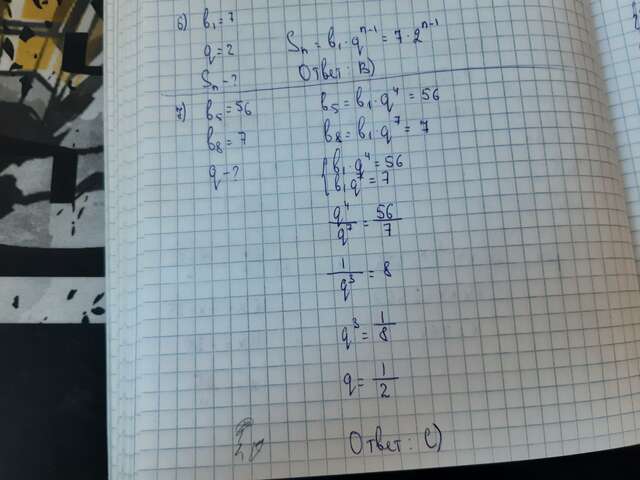 6) b₁ = 7
q = 2
Sₙ - ?
Sₙ = b₁ · qⁿ⁻¹ = 7 · 2ⁿ⁻¹
Ответ: B)
7) b₅ = 56
b₈ = 7
q - ?
b₅ = b₁ · q⁴ = 56
b₈ = b₁ · q⁷ = 7
{ b₁ · q⁴ = 56
b₁ q⁷ = 7
q⁴/q⁷ = 56/7
1/q³ = 8
q³ = 1/8
q = 1/2
Ответ: C)